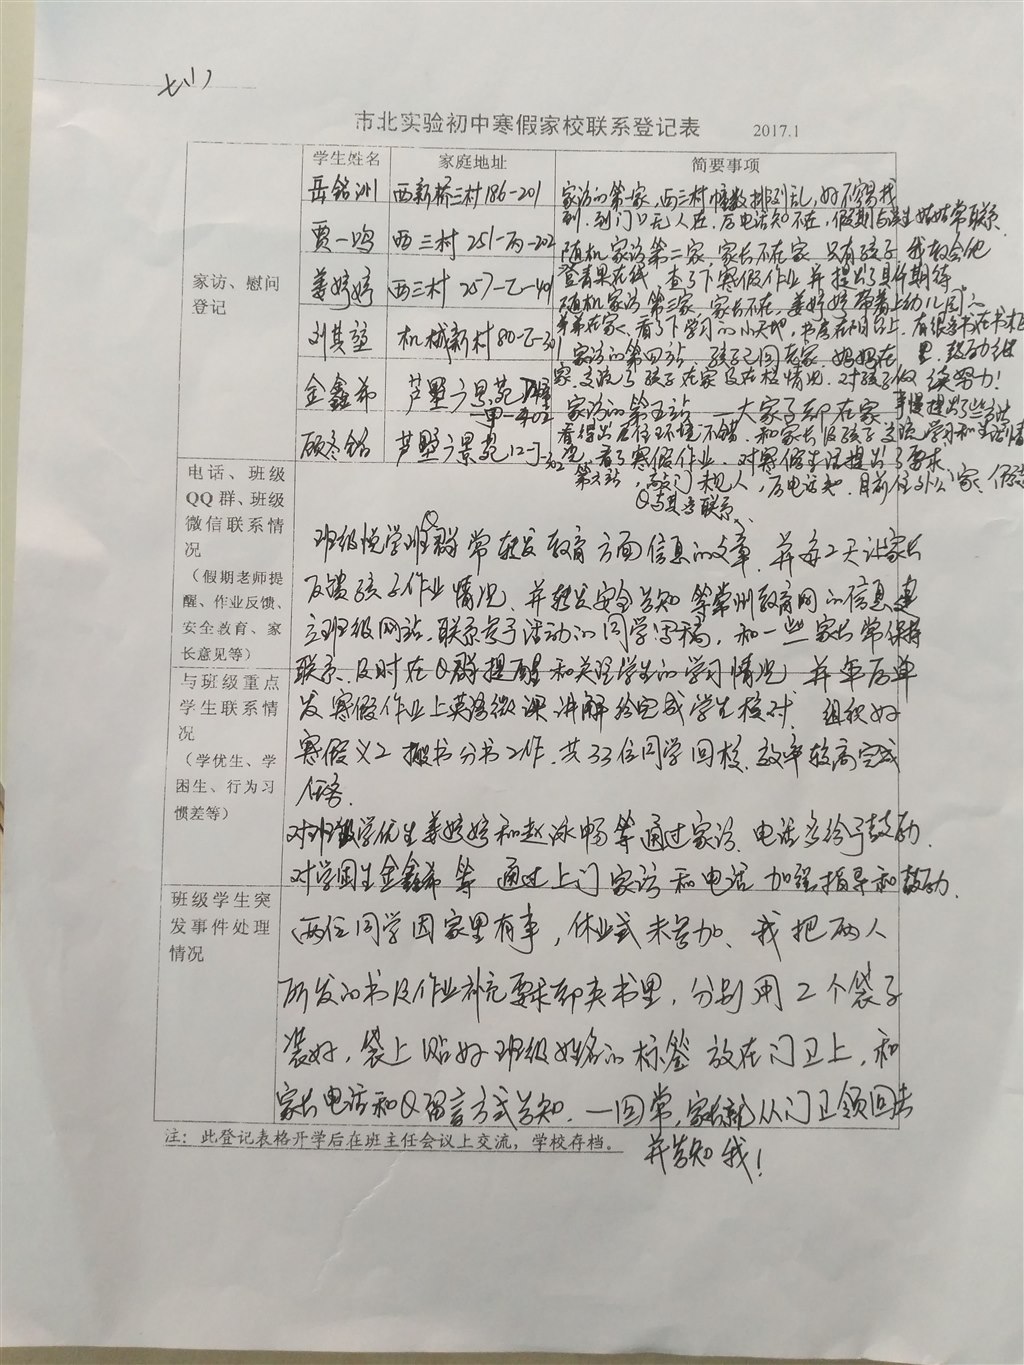 七(1)
市北实验初中寒假家校联系登记表 2017.1
学生姓名 家庭地址 简要事项
家访、慰问
登记
岳铭洲 西新桥三村186-201
家访的第一家,西三村幢数排列乱,好不容易找
到,到门口无人在,后电话知不在,假期与学生姑姑常联系
贾一鸣 西三村 251-丙-202
随机家访第二家,家长不在家 只有孩子 我教会他
登青果在线,查了下寒假作业并提出了具体期待
姜婷婷 西三村 257-乙-401
随机家访第三家,家长不在,姜婷婷带着上幼儿园的
弟弟在家、看了下学习的小天地,书房在阳台上,有很多书在书柜
里,鼓励继
续努力!
刘其堃 机械新村80-乙-301
家访的第四站 孩子已回老家 妈妈在
家,交流了孩子在家及在校情况,对孩子做
事慢提出了些方法
金鑫希 芦墅广景苑
甲-402
家访的第五站 一大家子都在家
看得出居住环境不错,和家长及孩子交流学习和生活情
况,看了寒假作业,对寒假生活提出了要求
顾冬铭 芦墅广景苑12-丁-302
第六站,敲门未见人,后电话知,目前住外公家,
Q与其多联系
电话、班级
QQ群、班级
微信联系情
况
(假期老师提
醒、作业反馈、
安全教育、家
长意见等)
班级悦学班Q群常转发教育方面信息的文章,并每2天让家长
反馈孩子作业情况,并转发安全告知等常州教育网的信息,建
立班级网站,联系亲子活动的同学写稿,和一些家长常保持
联系,及时在Q群提醒和关注学生的学习情况 并年后单
发寒假作业上英语微课讲解给完成学生核对 组织好
寒假义工搬书分书工作,共33位同学回校,效率较高完成
任务.
与班级重点
学生联系情
况
(学优生、学
困生、行为习
惯差等)
对班级学优生姜婷婷和赵泳畅等通过家访、电话多给予鼓励.
对学困生金鑫希等 通过上门家访和电话 加强指导和鼓励.
班级学生突
发事件处理
情况
两位同学因家里有事,休业式未参加、我把两人
所发的书及作业补充要求都夹书里,分别用2个袋子
装好,袋上贴好班级姓名的标签放在门卫上,和
家长电话和Q留言方式告知.一回常,家长就从门卫领回去
并告知我!
注:此登记表格开学后在班主任会议上交流,学校存档。